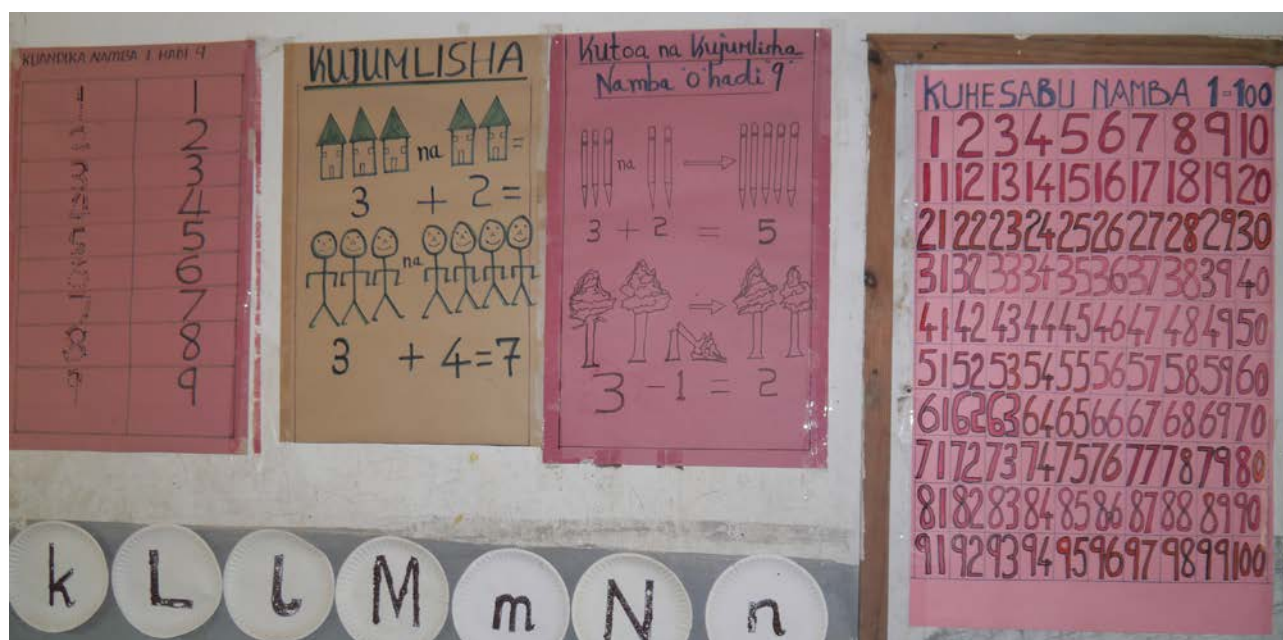 KUANDIKA NAMBA 1 HADI 9
1 1
2 2
3 3
4 4
5 5
6 6
7 7
8 8
9 9
KUJUMLISHA
na =
3 + 2 =
na
3 + 4 = 7
Kutoa na Kujumlisha
Namba 0 hadi 9
na
3 + 2 = 5
3 - 1 = 2
KUHESABU NAMBA 1-100
1 2 3 4 5 6 7 8 9 10
11 12 13 14 15 16 17 18 19 20
21 22 23 24 25 26 27 28 29 30
31 32 33 34 35 36 37 38 39 40
41 42 43 44 45 46 47 48 49 50
51 52 53 54 55 56 57 58 59 60
61 62 63 64 65 66 67 68 69 70
71 72 73 74 75 76 77 78 79 80
81 82 83 84 85 86 87 88 89 90
91 92 93 94 95 96 97 98 99 100
k L l M m N n